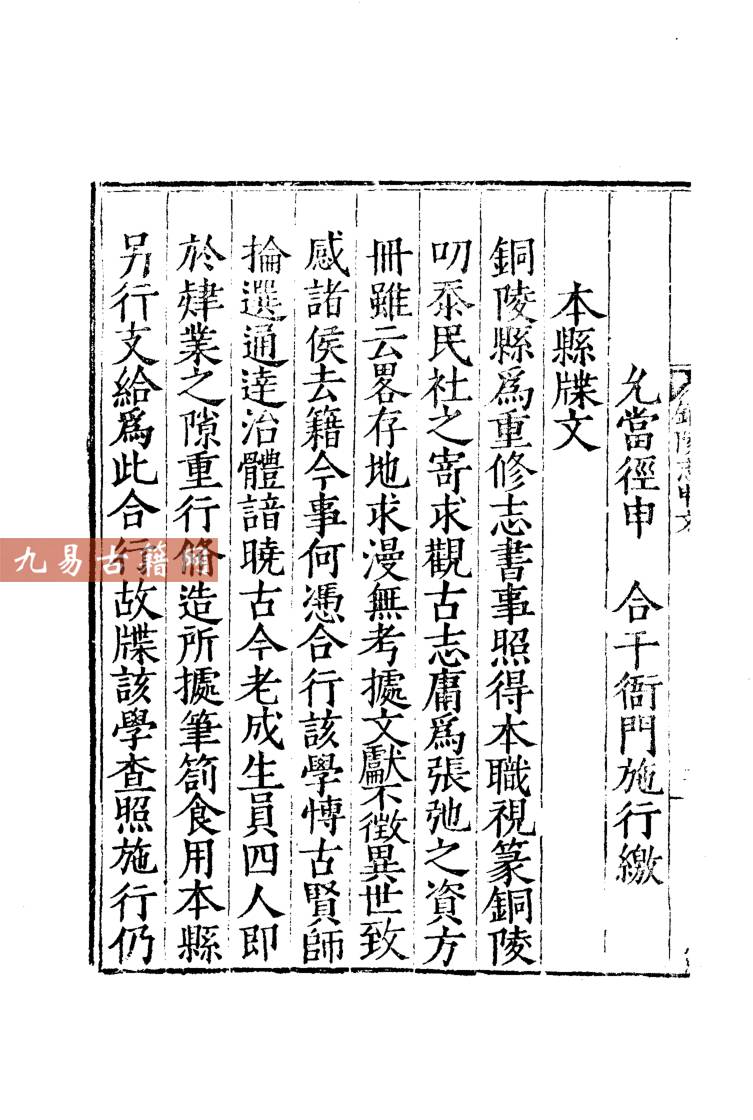 允當徑申　合干衙門施行繳
本縣牒文
銅陵縣爲重修志書事照得本職視篆銅陵
叨忝民社之寄求觀古志庸爲張弛之資方
冊雖云畧存地求漫無考據文獻不徵異世致
感諸侯去籍今事何憑合行該學愽古賢師
掄選通達治體諳曉古今老成生員四人即
於肄業之隙重行脩造所據筆箚食用本縣
另行支給爲此合行故牒該學查照施行仍
九易古籍網